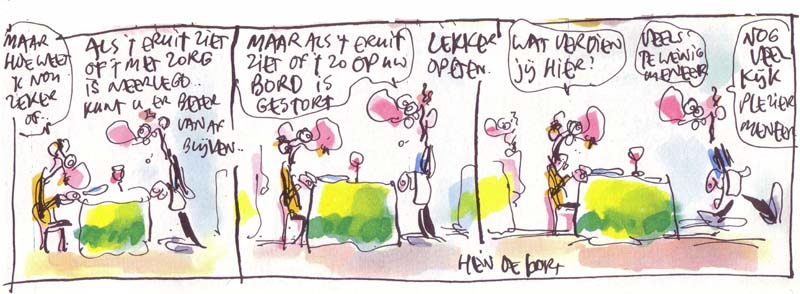 MAAR
HOE WEET
IK NOU
ZEKER
OF...
ALS 'T ERUIT ZIET
OF 'T MET ZORG
IS NEERGELEGD..
KUNT U ER BETER
VAN AF
BLIJVEN..
MAAR ALS 'T ERUIT
ZIET OF 'T ZO OP UW
BORD IS
GESTORT
LEKKER
OPETEN..
WAT VERDIEN
JIJ HIER?
VEELS
TE WEINIG
MENEER
NOG
VEEL
KIJK
PLEZIER
MENEER
HEIN DE KORT